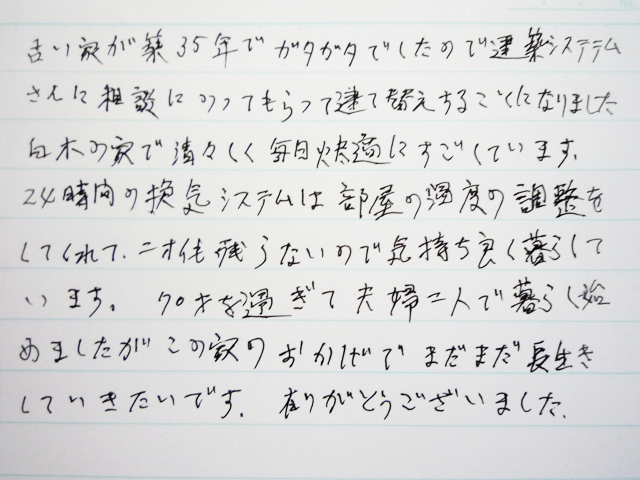 古い家が築35年でガタガタでしたので建築システム
さんに相談にのってもらって建て替えすることになりました
白木の家で清々しく毎日快適にすごしています。
24時間の換気システムは部屋の温度の調整を
してくれて、ニオイも残らないので気持ち良く暮らして
います。70才を過ぎて夫婦二人で暮らし始
めましたがこの家のおかげでまだまだ長生き
していきたいです。有りがとうございました。